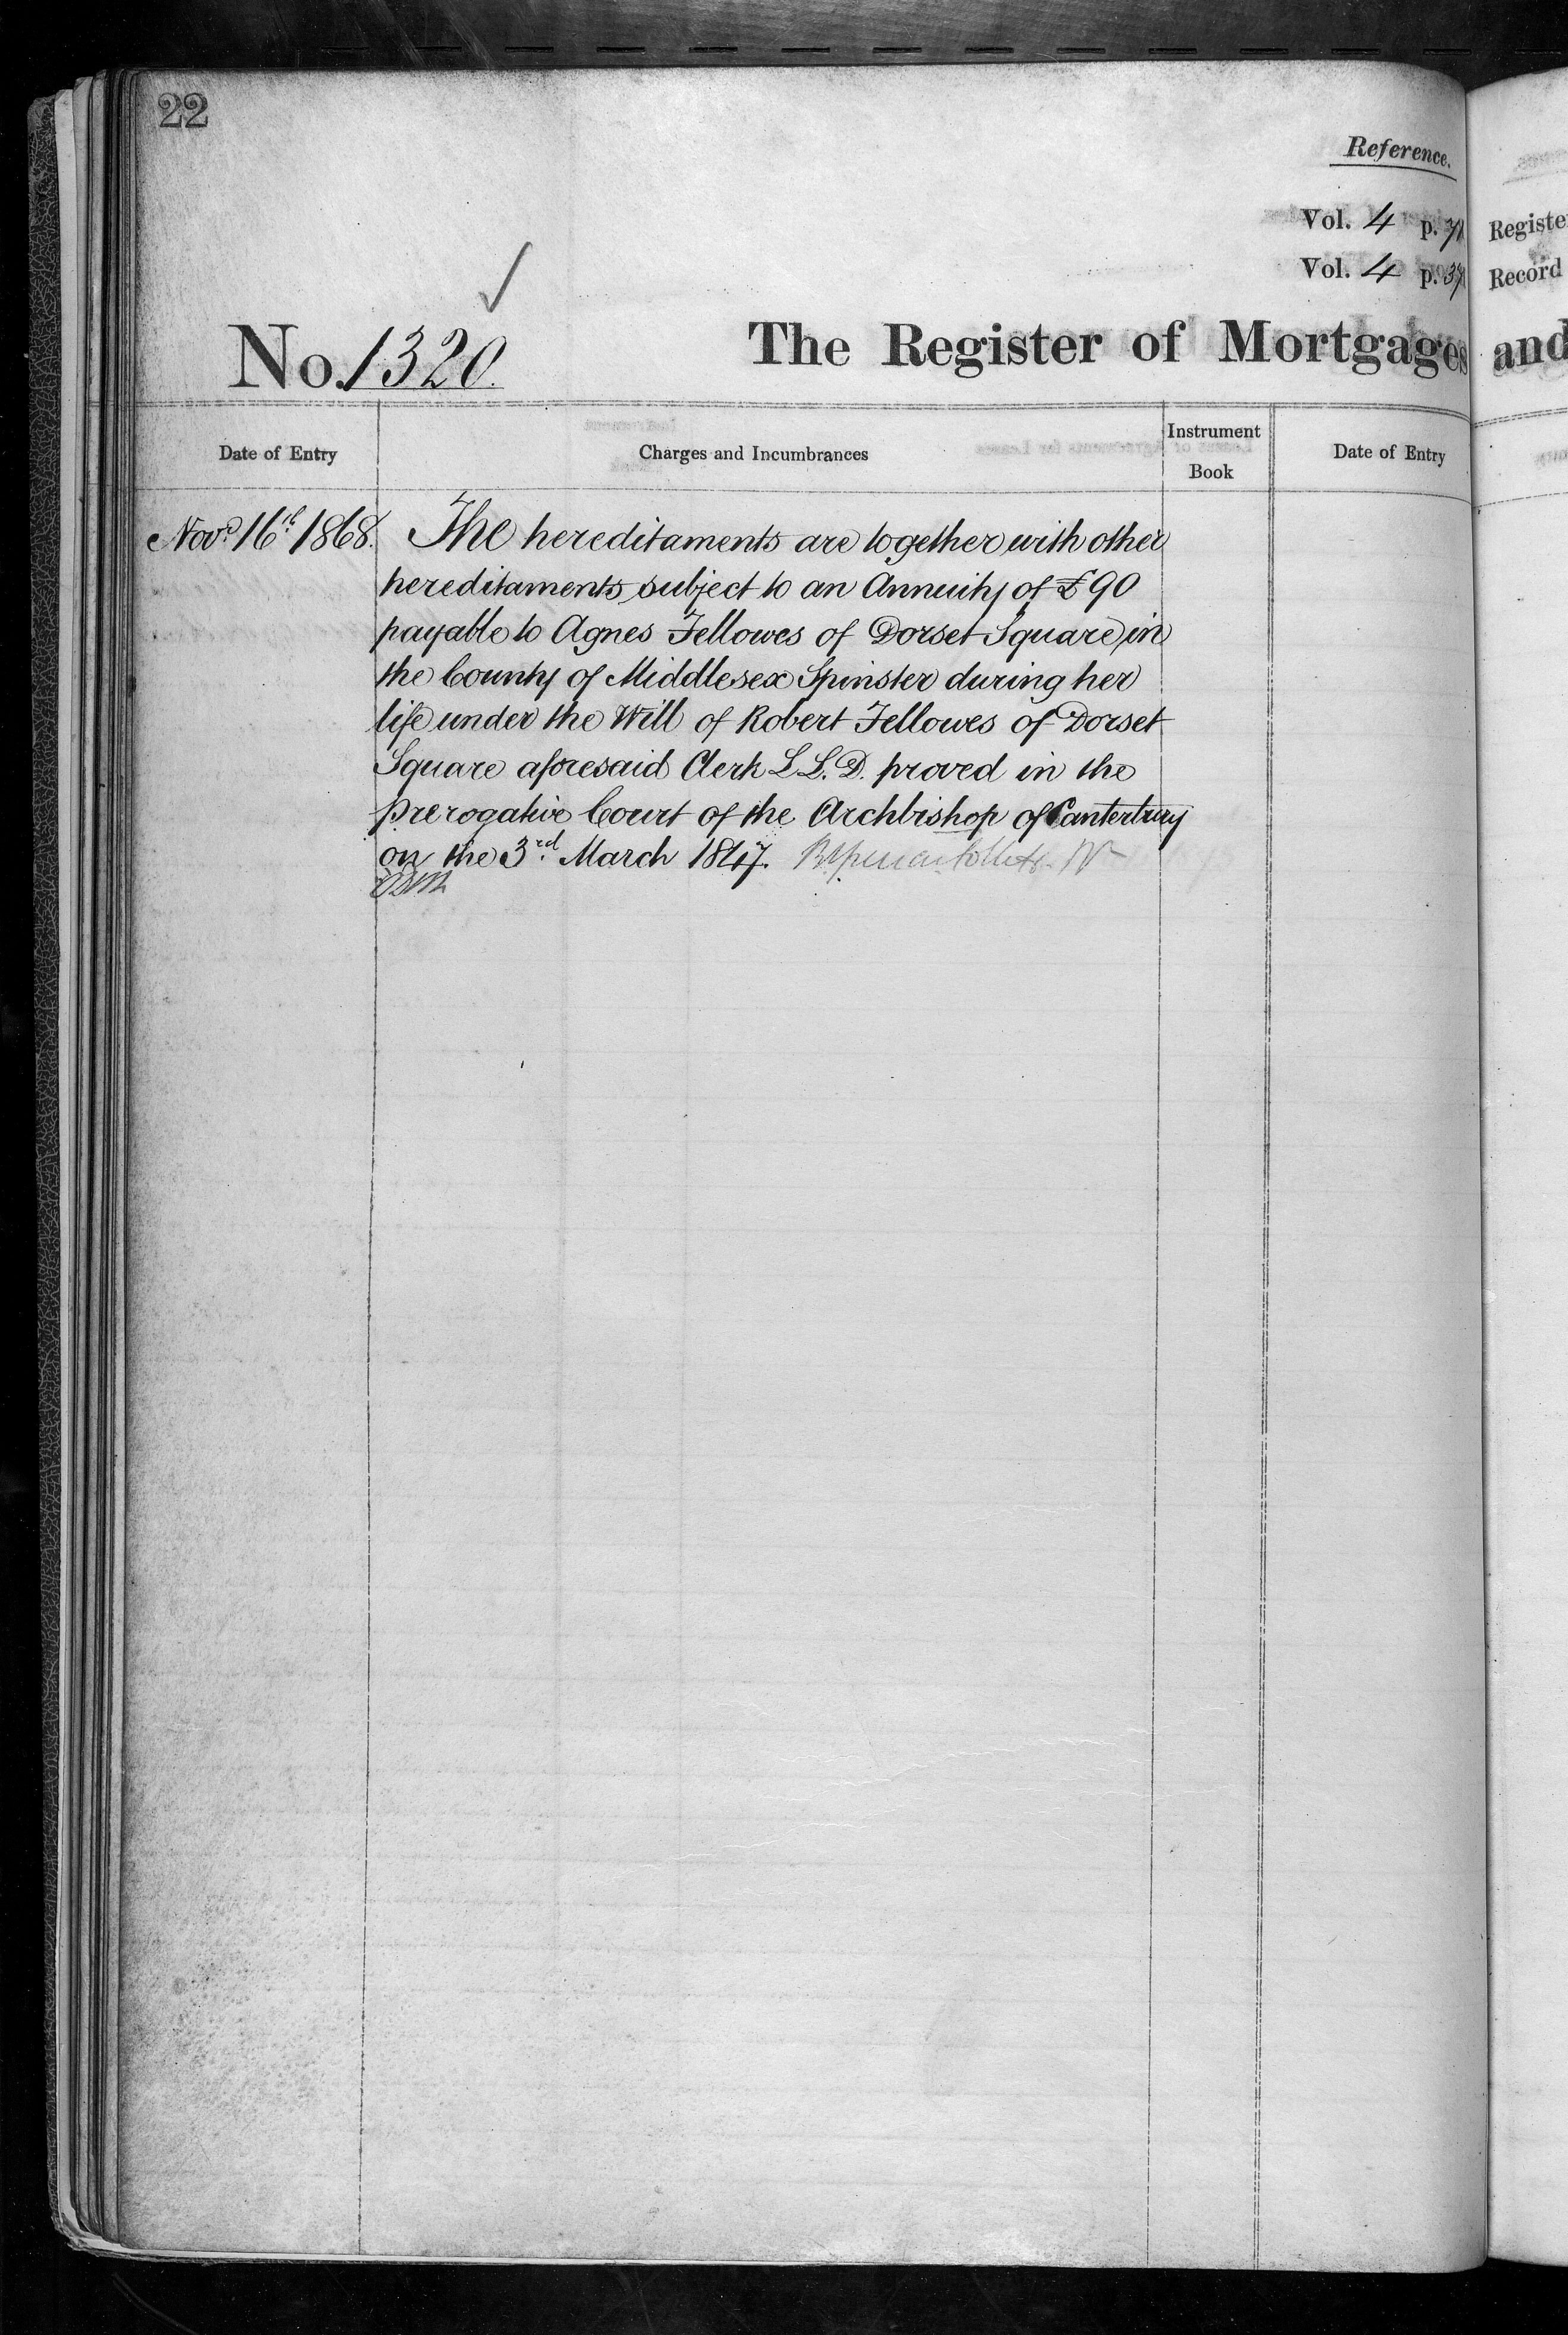 22
Reference.
Vol. 4 p.
Vol. 4 p.
Registe
Record
No. 1320.
The Register of Mortgages and
Date of Entry
Charges and Incumbrances
Instrument
Book
Date of Entry
Novr. 16th 1868.
The hereditaments are together with other
hereditaments subject to an Annuity of £90
payable to Agnes Fellowes of Dorset Square in
the County of Middlesex Spinster during her
life under the Will of Robert Fellowes of Dorset
Square aforesaid Clerk L.L.D. proved in the
Prerogative Court of the Archbishop of Canterbury
on the 3rd March 1847.